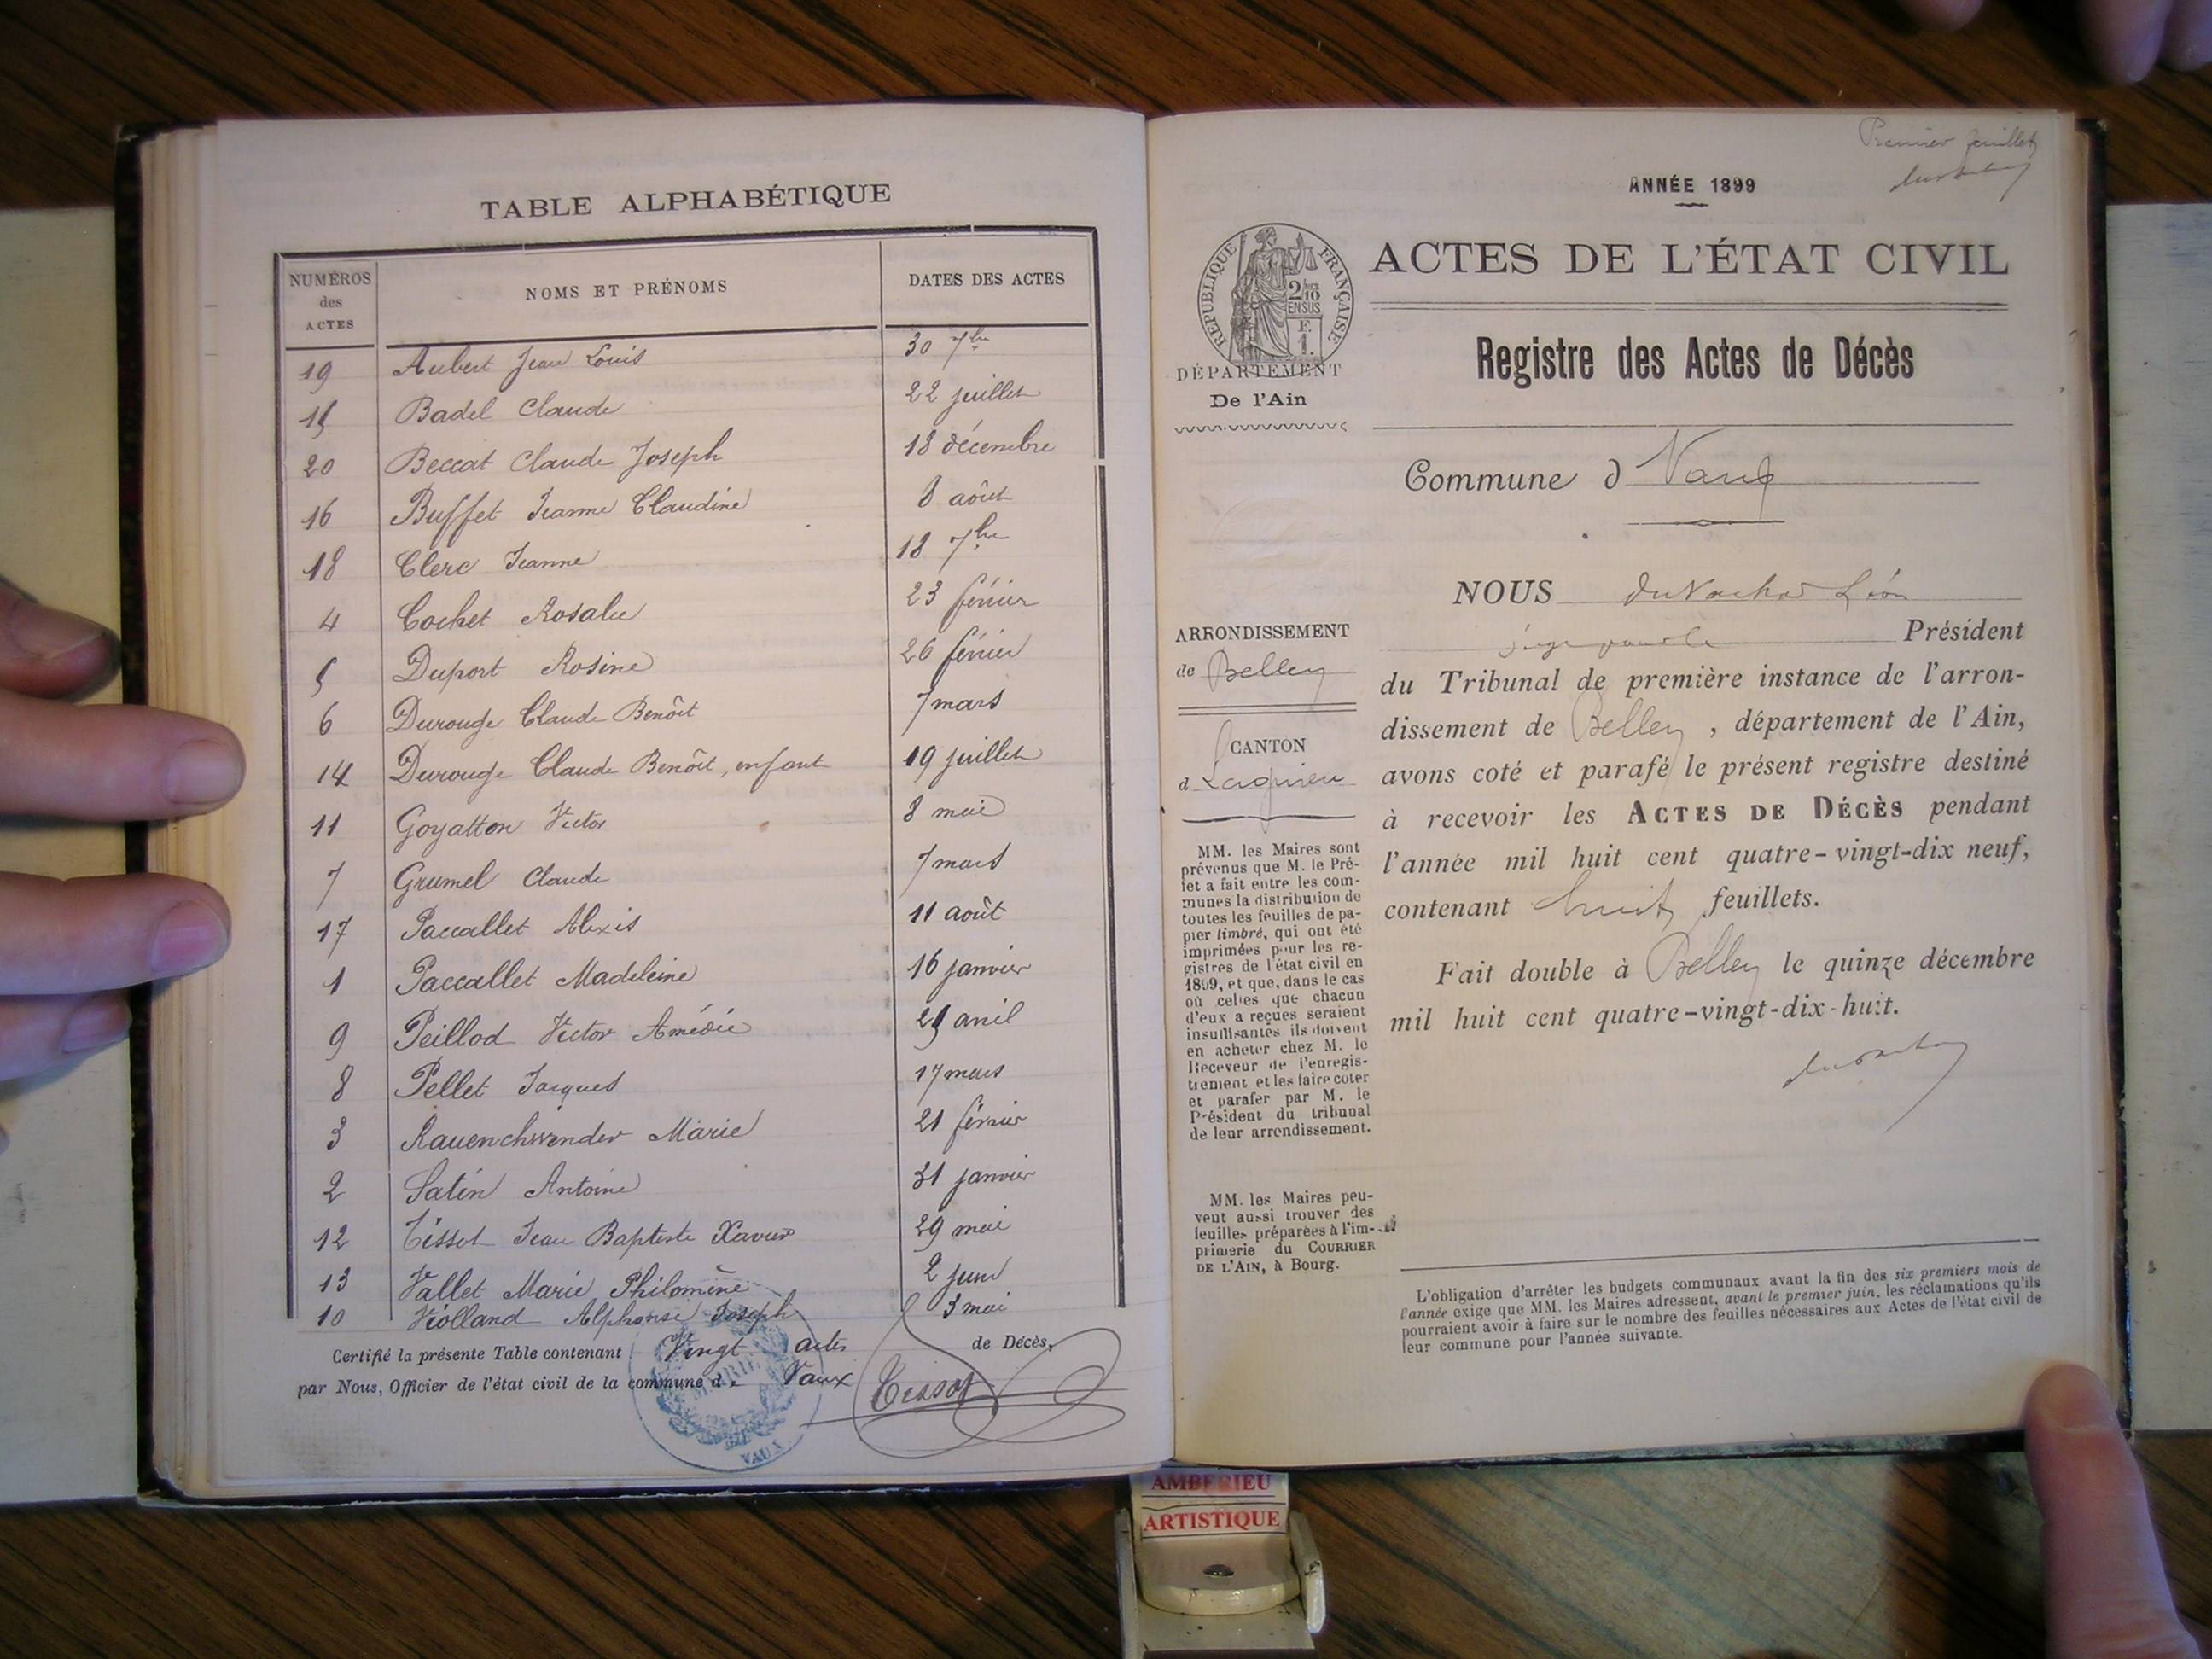 TABLE ALPHABÉTIQUE
NUMÉROS des ACTES
NOMS ET PRÉNOMS
DATES DES ACTES
19 Aubert Jean Louis 30 7bre
15 Badel Claude 22 juillet
20 Beccat Claude Joseph 18 décembre
16 Buffet Jeanne Claudine 8 août
18 Clerc Jeanne 18 7bre
4 Cochet Rosalie 23 février
5 Duport Rosine 26 février
6 Durouge Claude Benoît 7 mars
14 Durouge Claude Benoît, enfant 19 juillet
11 Goyatton Victor 8 mai
7 Grumel Claude 7 mars
17 Paccallet Alexis 11 août
1 Paccallet Madeleine 16 janvier
9 Peillod Victor Amédée 25 avril
8 Pellet Jacques 17 mars
3 Rauenchwender Marie 21 février
2 Satin Antoine 31 janvier
12 Tissot Jean Baptiste Xavier 29 mai
13 Vallet Marie Philomène 2 juin
10 Violland Alphonse Joseph 3 mai
Certifié la présente Table contenant Vingt actes de Décès,
par Nous, Officier de l'état civil de la commune d. Vaux
Tissot
MAIRIE
VAUX
Premier feuillet
ANNÉE 1899
RÉPUBLIQUE FRANÇAISE
2/10
EN SUS
F.
1.
ACTES DE L'ÉTAT CIVIL
DÉPARTEMENT
De l'Ain
Registre des Actes de Décès
Commune d Vaux
ARRONDISSEMENT
de Belley
CANTON
d Lagnieu
MM. les Maires sont
prévenus que M. le Pré-
fet a fait entre les com-
munes la distribution de
toutes les feuilles de pa-
pier timbré, qui ont été
imprimées pour les re-
gistres de l'état civil en
1899, et que, dans le cas
où celles que chacun
d'eux a reçues seraient
insuffisantes ils doivent
en acheter chez M. le
Receveur de l'enregis-
trement et les faire coter
et parafer par M. le
Président du tribunal
de leur arrondissement.
MM. les Maires peu-
vent aussi trouver des
feuilles préparées à l'im-
primerie du COURRIER
DE L'AIN, à Bourg.
NOUS Léon
juge pour le Président
du Tribunal de première instance de l'arron-
dissement de Belley, département de l'Ain,
avons coté et parafé le présent registre destiné
à recevoir les ACTES DE DÉCÈS pendant
l'année mil huit cent quatre-vingt-dix neuf,
contenant huit feuillets.
Fait double à Belley le quinze décembre
mil huit cent quatre-vingt-dix-huit.
L'obligation d'arrêter les budgets communaux avant la fin des six premiers mois de
l'année exige que MM. les Maires adressent, avant le premier juin, les réclamations qu'ils
pourraient avoir à faire sur le nombre des feuilles nécessaires aux Actes de l'état civil de
leur commune pour l'année suivante.
AMBERIEU
ARTISTIQUE